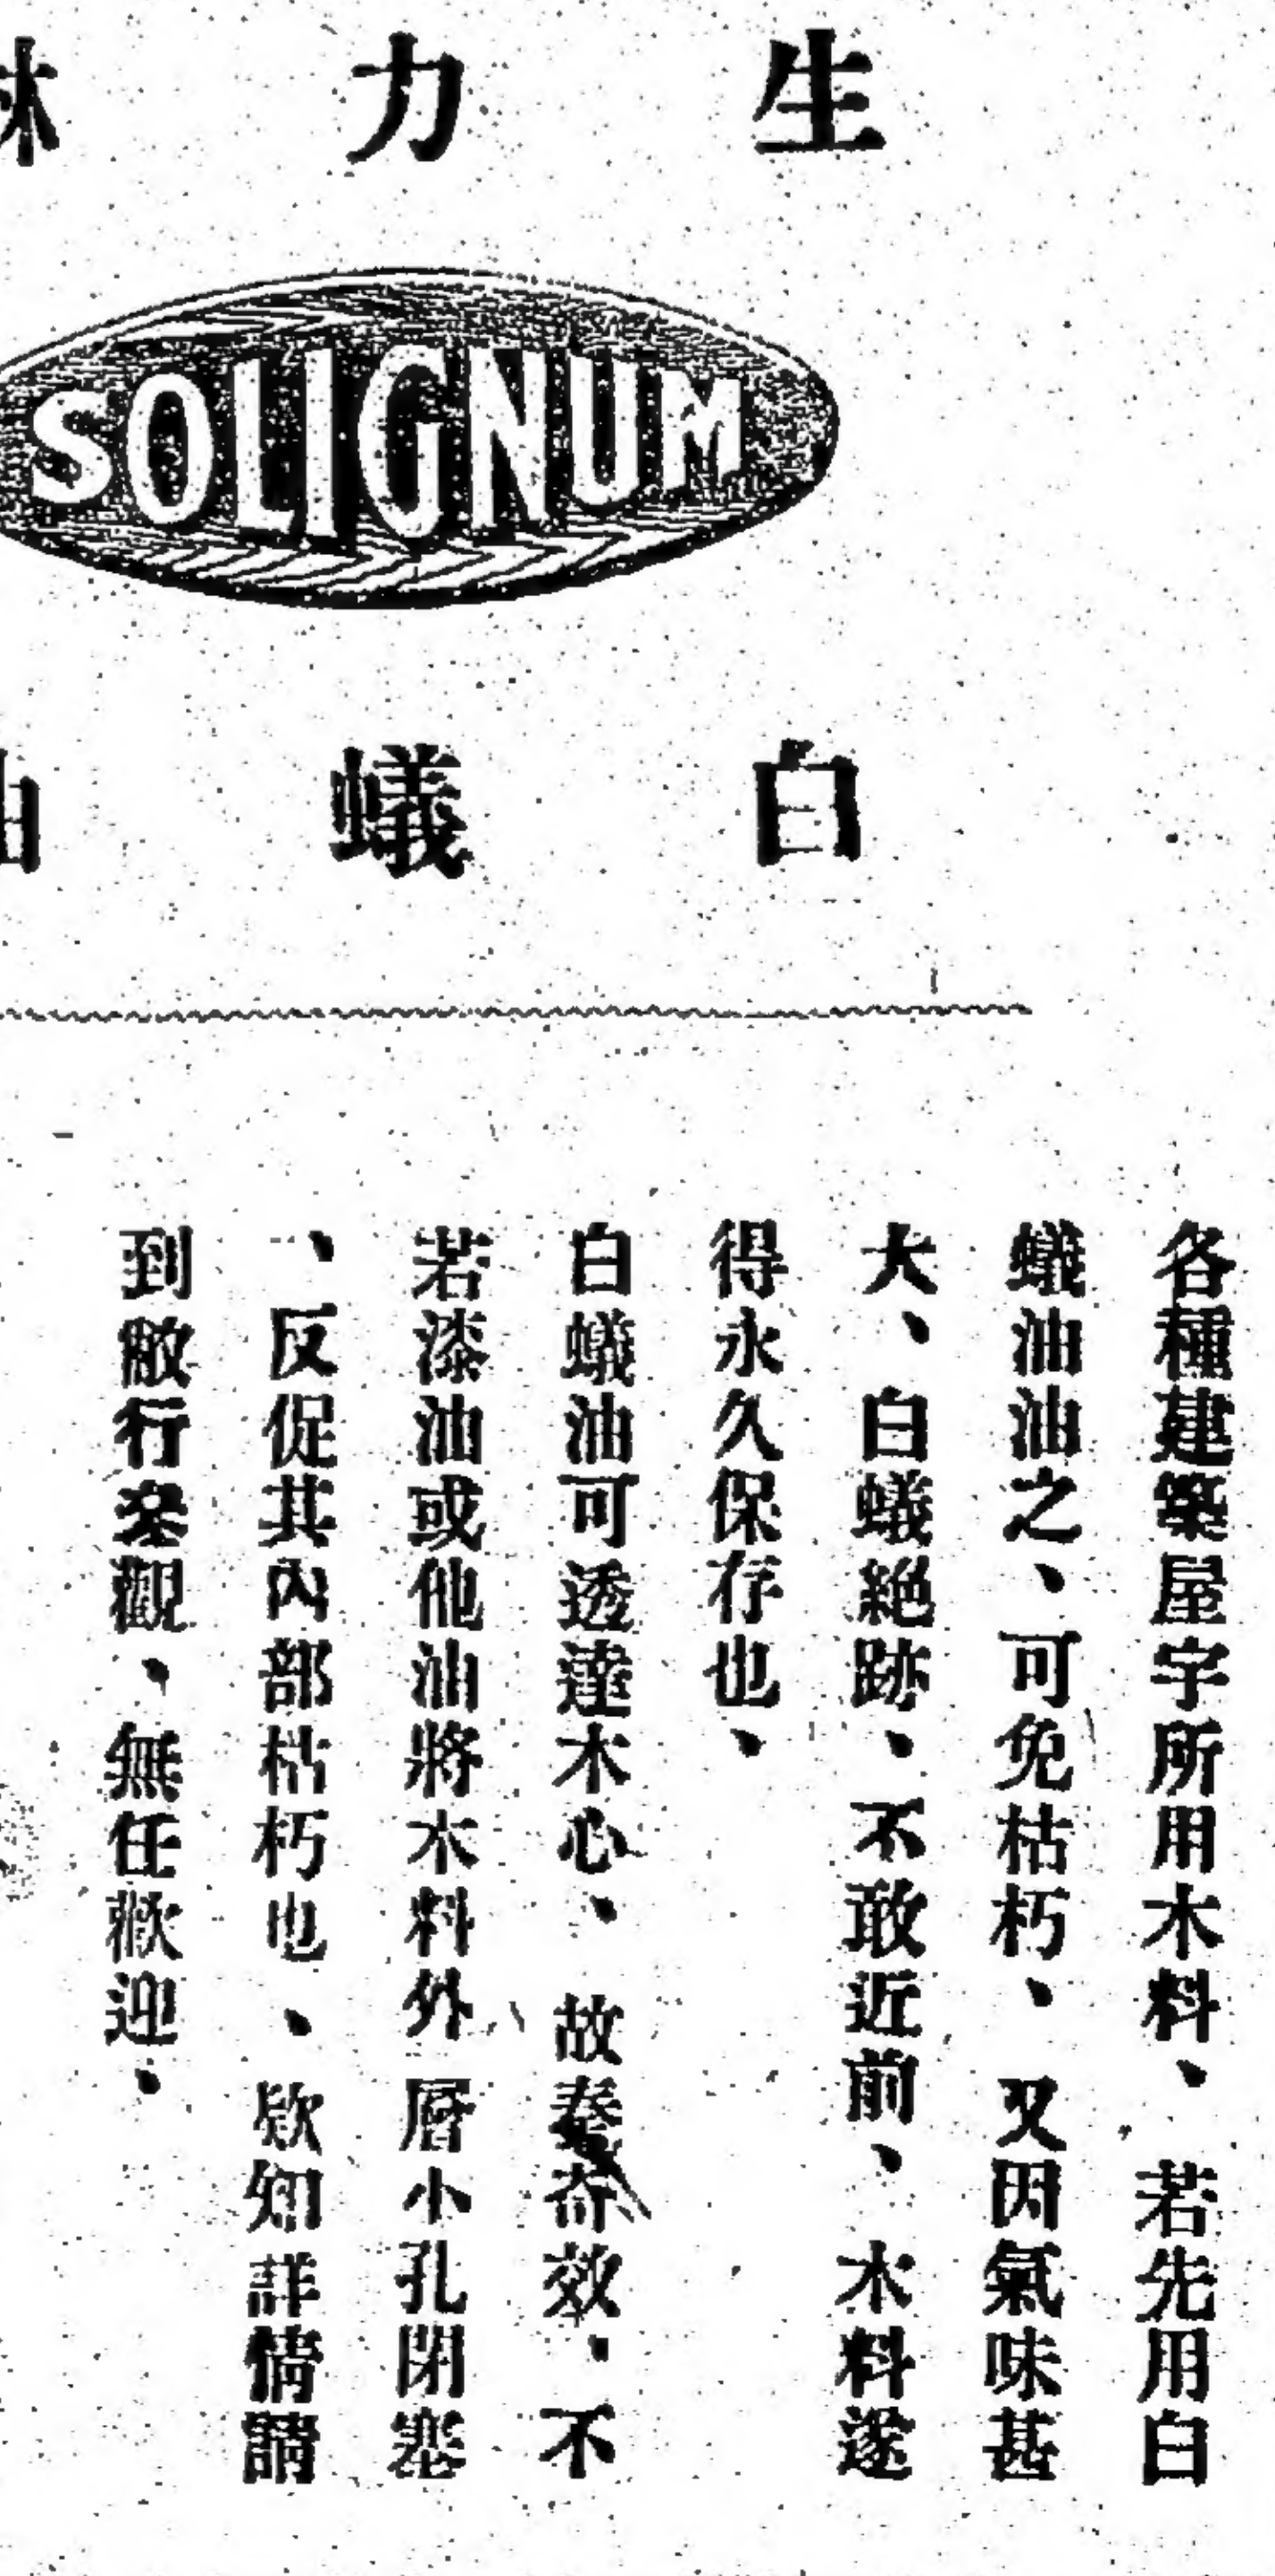 生力林
SOLIGNUM
白蟻油
各種建築屋宇所用木料、若先用白
蟻油油之、可免枯朽、又因氣味甚
大、白蟻絕跡、不敢近前、木料遂
得永久保存也、
白蟻油可透達木心、故奏奇效、不
若漆油或他油將木料外層小孔閉塞
、反促其內部枯朽也、欲知詳情請
到敝行叅觀、無任歡迎、